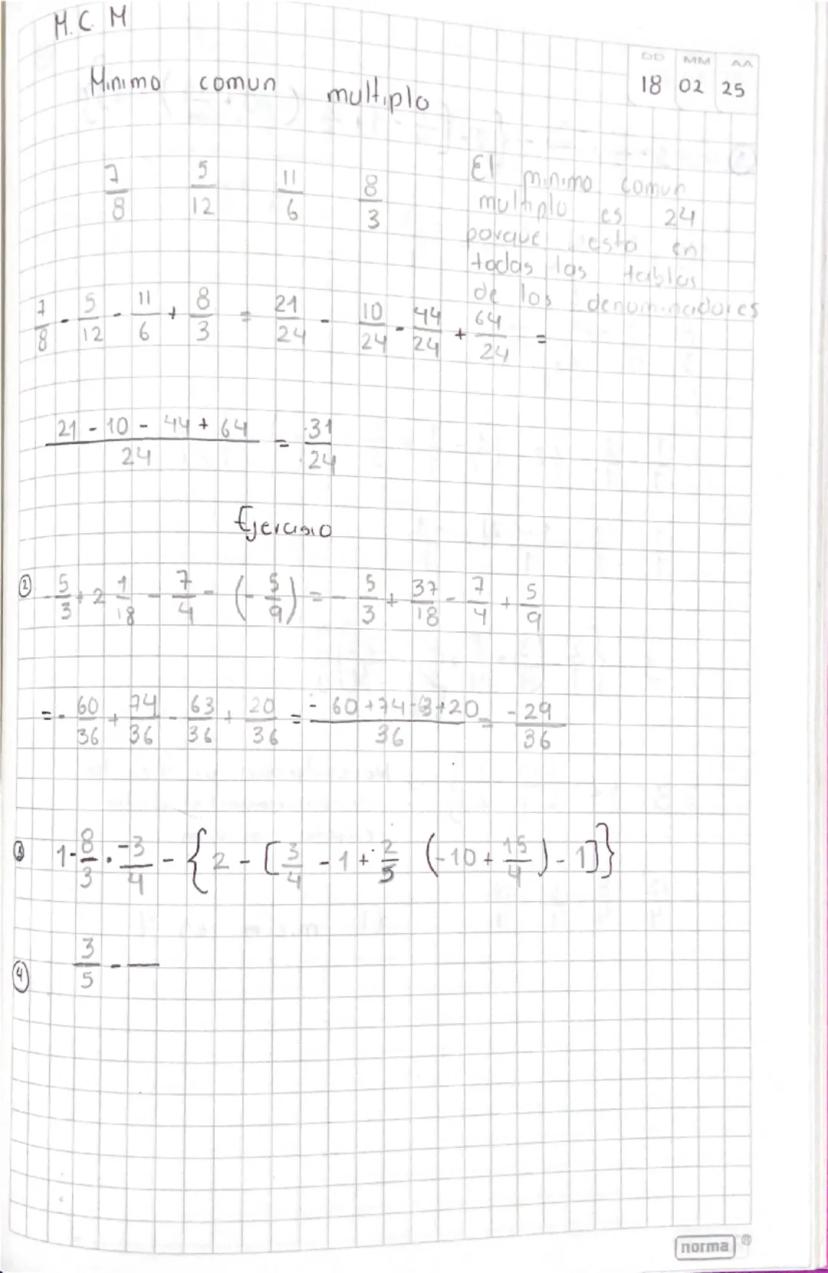 M.C.M
DD MM AA
18 02 25
Minimo comun multiplo
7/8 5/12 11/6 8/3
El minimo comun
multiplo es 24
porque esta en
todas las tablas
de los denominadores
7/8 - 5/12 - 11/6 + 8/3 = 21/24 - 10/24 - 44/24 + 64/24 =
21 - 10 - 44 + 64/24 = 31/24
Ejercisio
② -5/3 + 2 1/18 - 7/4 - (-5/9) = -5/3 + 37/18 - 7/4 + 5/9
= -60/36 + 74/36 - 63/36 + 20/36 = -60+74-63+20/36 = -29/36
③ 1-8/3 · -3/4 - {2 - [3/4 - 1 + 2/5 (-10 + 15/4) - 1]}
④ 3/5 - —
norma